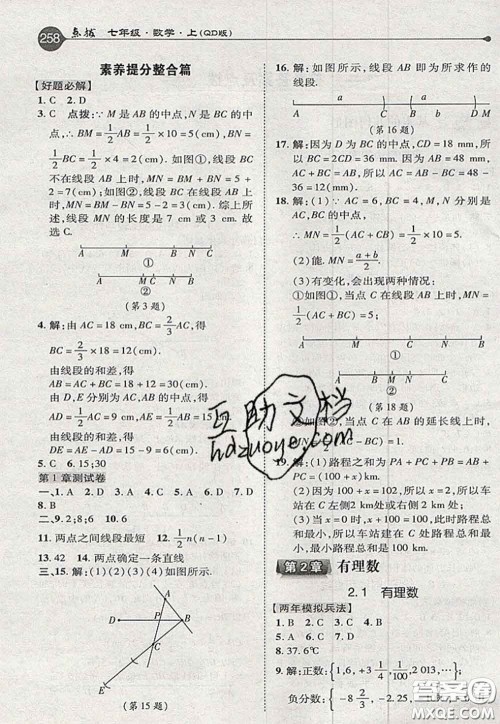 258 点拨 七年级·数学·上(QD版)
素养提分整合篇
【好题必解】
1. C 2. D
3. C 点拨:∵M 是 AB 的中点,N 是 BC 的中
点,∴BM=1/2AB=1/2×10=5(cm),BN=
1/2BC=1/2×4=2(cm). 如图①,线段 BC
不在线段 AB 上时,MN=BM+BN=5+
2=7(cm);如图②,线段 BC 在线段 AB 上
时,MN=BM-BN=5-2=3(cm). 综上所
述,线段 MN 的长度是 7 cm 或 3 cm. 故
选 C.
A M B N C
①
A M C N B
②
(第 3 题)
4. 解:由 AC=18 cm,BC=2/3AC,得
BC=2/3×18=12(cm).
由线段的和差,得
AB=AC+BC=18+12=30(cm).
由 D,E 分别为 AC,AB 的中点,得
AE=1/2AB=15 cm,AD=1/2AC=9 cm.
由线段的和差,得
DE=AE-AD=15-9=6(cm).
5. C 6. 15;30
第 1 章测试卷
一、1. A 2. D 3. B 4. A 5. A 6. D 7. D
8. B
二、9. 2;8;6
11. 两点之间线段最短 12. 1/2n(n-1)
13. 42 14. 两点确定一条直线
三、15. 解:(1)(2)(3)(4)如图所示.
A
D P B
C
E
(第 15 题)
16. 解:如图所示,线段 AB 即为所求作的
线段.
a a b
A B
(第 16 题)
17. 解:因为 D 为 BC 的中点,CD=18 mm,所
以 BC=2CD=36 mm. 因为 AB=48 mm,
所以 AC=AB-BC=48-36=12(mm).
18. 解:(1)∵AC=6,BC=4,M,N 分别是
AC,BC 的中点,
∴MN=1/2(AC+CB)=1/2×10=5.
(2)能. MN=(a+b)/2.
(3)有变化,会出现两种情况:
①如图①,当点 C 在线段 AB 上时,
MN=1/2(AC+BC)=5.
A M C N B
①
②
(第 18 题)
②如图②,当点 C 在 AB 的延长线上时,
19. 解:(1)路程之和为 PA+PC+PB=AB+
(2)100+x=102,x=2,所以车
站在 C 左侧或右侧 2 km 处.
(3)当 x=0 时,x+100=100,所以车站
建在 C 处路程和最小,路程和为
100 km.
第 2 章 有理数
2.1 有理数
【两年模拟兵法】
8. 37.6℃
9. 解:正数:{1,6,+3 1/4,1/100,2 013,…};
互助文档
hdzuoye.com
答案圈
MXQE.COM